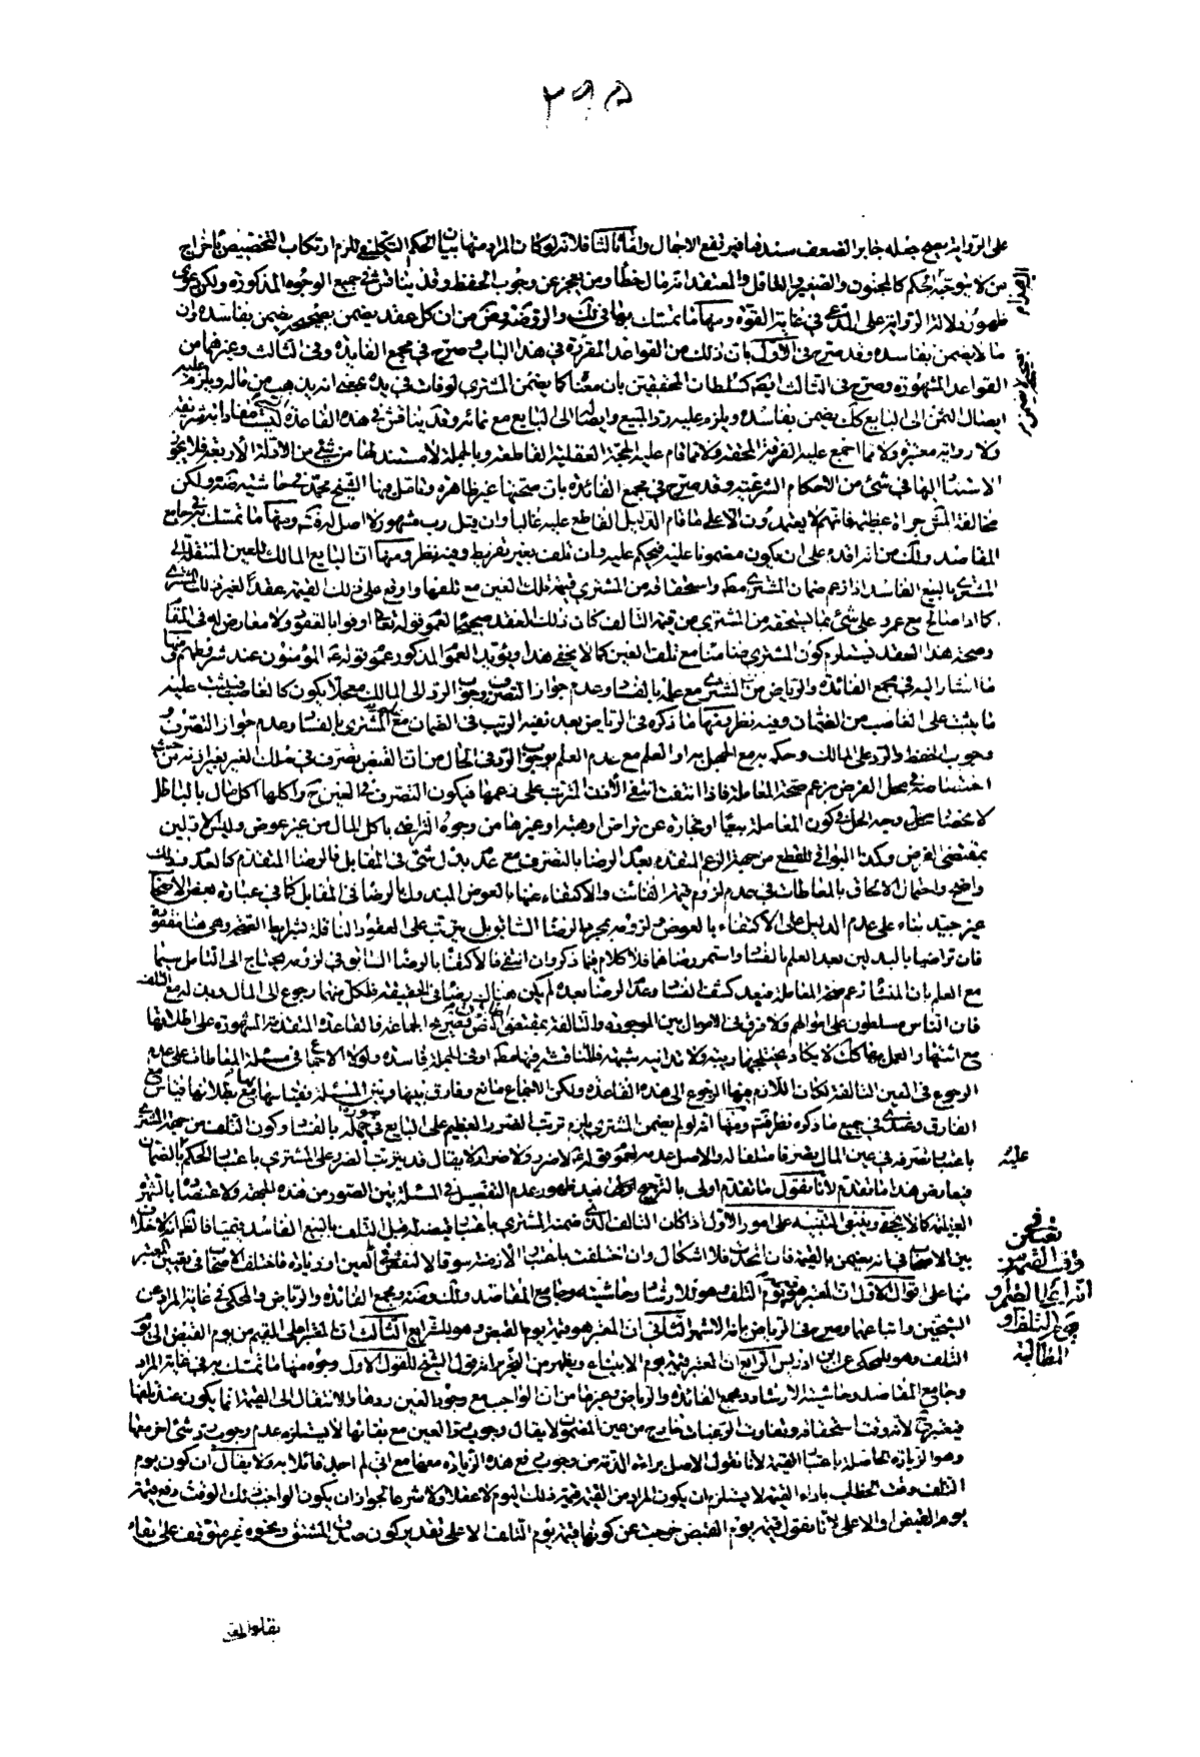 ٢٩٥
على الرواية يصح جعله جابر الضعف سندها فيرتفع الاجمال واما ثالثا فلانه لو كان المراد منها بيان الحكم التكليفي للزم ارتكاب التخصيص باخراج
من لا يتوجه اليه الحكم كالمجنون والصغير والغافل والمعتقد انه مال خطأ ومن يعجز عن وجوب الحفظ وقد يناقش في جميع الوجوه المذكورة ولكن دعوى
ظهور دلالة الرواية على المدعى في غاية القوة ومنها ما تمسك به في لك والروضة وض من ان كل عقد يضمن بصحيحه يضمن بفاسده وان
ما لا يضمن بفاسده وقد صرح في الاول بان ذلك من القواعد المقررة في هذا الباب وصرح في مجمع الفائدة وفى الثالث وغيرها من
القواعد المشهورة وصرح في الثالث ايضا كسلطان المحققين بان معناه كما يضمن المشترى لو فات في يده بمعنى انه يذهب من ماله ويلزم عليه
ايصال الثمن الى البايع كك يضمن بفاسده ويلزمه عليه رد المبيع وايصاله الى البايع مع نمائه وقد يناقش في هذه القاعدة
ولا رواية معتبرة ولا مما اجمع عليه الفرقة المحقة ولا مما قام عليه الحجة العقلية القاطعة وبالجملة لا مستند لها من شئ من الادلة الأربعة فلا يجوز
الاستناد اليها في شئ من الاحكام الشرعية وقد صرح في مجمع الفائدة بان صحتها غير ظاهرة وتامل فيها الشيخ محمد في حاشية ضه ولكن
مخالفة المش جراة عظيمة فانهم لا يعتمدون الا على ما قام الدليل القاطع عليه غالبا وان قيل رب مشهور لا اصل له ومنها ما تمسك به في جامع
المقاصد ولك من انه اقدم على ان يكون مضمونا عليه فيحكم عليه وان تلف بغير تفريط وفيه نظر ومنها ان البايع المالك للعين المنتقلة الى
المشترى بالبيع الفاسد اذا زعم ضمان المشترى واستحقاقه من المشترى قيمة تلك العين مع تلفها واوقع على تلك القيمة عقدا لغير ذلك المشترى
كما اذا صالح مع عمرو على شئ بما يستحقه من المشترى من قيمة التالف كان ذلك العقد صحيحا لعموم قوله تعالى اوفوا بالعقود ولا معارض له في المقام
وصحة هذا العقد يستلزم كون المشترى ضامنا مع تلف العين كما لا يخفى هذا ويؤيد العموم المذكور عموم قوله ع المؤمنون عند شروطهم ومنها
ما اشار اليه في مجمع الفائدة والرياض من المشترى مع علمه بالفساد وعدم جواز التصرف ووجوب الرد الى المالك معجلا يكون كالغاصب فيثبت عليه
ما يثبت على الغاصب من الضمان وفيه نظر ومنها ما ذكره في الرياض بعد نفيه الريب في الضمان مع علم المشترى بالفساد وعدم جواز التصرف و
وجوب الحفظ والرد على المالك وحكمه به مع الجهل به او العلم مع عدم العلم بوجوب الرد في الحال من ان القبض تصرف في ملك الغير بغير اذنه
اختصاصه في محل الفرض بزعم صحة المعاملة فاذا انتفت انتفى الأذن المترتب على زعمها فيكون التصرف في العين ح واكلها اكل مال بالباطل
لانحصار وجه الحل في كون المعاملة بيعا او تجارة عن تراض او هبة او غيرها من وجوه التراضي باكل المال من غير عوض وليس الاولين
بمقتضى الفرض وكذا البواقي للقطع من جهة الزعم المتقدم بعدم الرضا بالتصرف مع عدم بذل شئ في المقابل فالرضا المتقدم كالعدم وذلك
واضح واحتمال الالحاق بالمعاطات في عدم لزوم قيمة الفائت والاكتفاء عنها بالعوض المبذول بالرضا في المقابل كما في عبارة بعض الاصحاب
غير جيد بناء على عدم الدليل على الاكتفاء بالعوض ولزومه بمجرد الرضا السابق بل يترتب على العقود الناقلة بشرايط الصحة وهي هنا مفقودة
فان تراضيا بالبدلين بعد العلم بالفساد واستمر رضاهما فلا كلام فيما ذكر وان انتفى فالاكتفاء بالرضا السابق في لزومه يحتاج الى التامل سيما
مع العلم بان المنشأ زعم صحة المعاملة فبعد كشف الفساد وعدم الرضا بعده لم يكن هناك رضا في الحقيقة فلكل منهما رجوع الى المال دون له مع التلف
فان الناس مسلطون على اموالهم ولا فرق في الاموال بين الموجودة والتالفة بمقتضى النص وتصريح الجماعة فالقاعدة المتقدمة المشهورة على اطلاقها
مع اشتهار العمل بها كك لا يكاد يختلجها ريبة ولا تدانيه شبهة فالمناقشة فيها مطلقا او في الجملة فاسدة ولولا الاجماع في مسئلة المعاطات على عدم
الرجوع في العين التالفة لكان اللازم فيها الرجوع الى هذه القاعدة ولكن الاجماع مانع وفارق بينها وبين المسئلة وقياسها بها مع بطلانها قياس مع
الفارق وعندى في جميع ما ذكره نظر فتم ومنها انه لو لم يضمن المشترى يلزم ترتب الضرر العظيم على البايع في صورة جهله بالفساد وكون التلف من جهة المشترى
باعتبار تصرفه في عين المال تصرفا متلفا له والاصل عدمه لعموم قوله لا ضرر ولا ضرار لا يقال قد يترتب الضرر على المشترى باعتبار الحكم بالضمان
فيعارض هذا ما تقدم لأنا نقول ما تقدم اولى بالترجيح اذ ظهور عدم التفصيل في المسئلة بين الصور من هذه الجهة ولاعتضاده بالشهرة
العظيمة كما لا يخفى وينبغي التنبيه على امور الأول اذا كان التالف الذى ضمنه المشترى باعتبار قبضه له قبل التلف بالبيع الفاسد قيميا فالظاهر انه لا خلاف
بين الاصحاب في انه يضمن بالقيمة فان اتحدت فلا اشكال وان اختلفت باعتبار الأزمنة سوقا لا لنقص في العين او زيادة فاختلف الاصحاب في تعيين المعتبر
منها على اقوال الاول ان المعتبر هو قيمة يوم التلف وهو للارشاد وحاشيته وجامع المقاصد ولك وضه ومجمع الفائدة والرياض والمحكي في غاية المراد عن
الشيخين واتباعهما وصرح في الرياض بانه الاشهر الثاني ان المعتبر هو قيمة يوم القبض وهو للشرايع الثالث ان المعتبر اعلى القيم من يوم القبض الى يوم
التلف وهو للمحكي عن ابن ادريس الرابع ان المعتبر قيمة يوم الابتياع ويظهر من التحرير انه قول الشيخ للقول الاول وجوه منها ما تمسك به في غاية المراد
وجامع المقاصد وحاشية الارشاد ومجمع الفائدة والرياض وغيرها من ان الواجب مع وجود العين ردها والانتقال الى القيمة انما يكون عند تلفها
فيعتبر ح لأنه وقت استحقاقه وتفاوت الرغبات خارج من عين المضمون لا يقال وجوب رد العين مع بقائها لا يستلزم عدم وجوب رد شئ اخر معها
وهو الزيادة الحاصلة باعتبار القيمة لأنا نقول الاصل براءة الذمة من وجوب دفع هذه الزيادة معها مع انى لم اجد قائلا به ولا يقال ان كون يوم
التلف وقت الخطاب باداء القيمة لا يستلزم ان يكون المراد من القيمة قيمة ذلك اليوم لا عقلا ولا شرعا لجواز ان يكون الواجب في ذلك الوقت دفع قيمة
يوم القبض او الاعلى لأنا نقول قيمة يوم القبض خرجت عن كونها قيمة يوم التلف الا على تقدير كون صدق المشتق ونحوه غير متوقف على بقاء
عليه
وقت الضمير
المطالبة
بقاء المبد